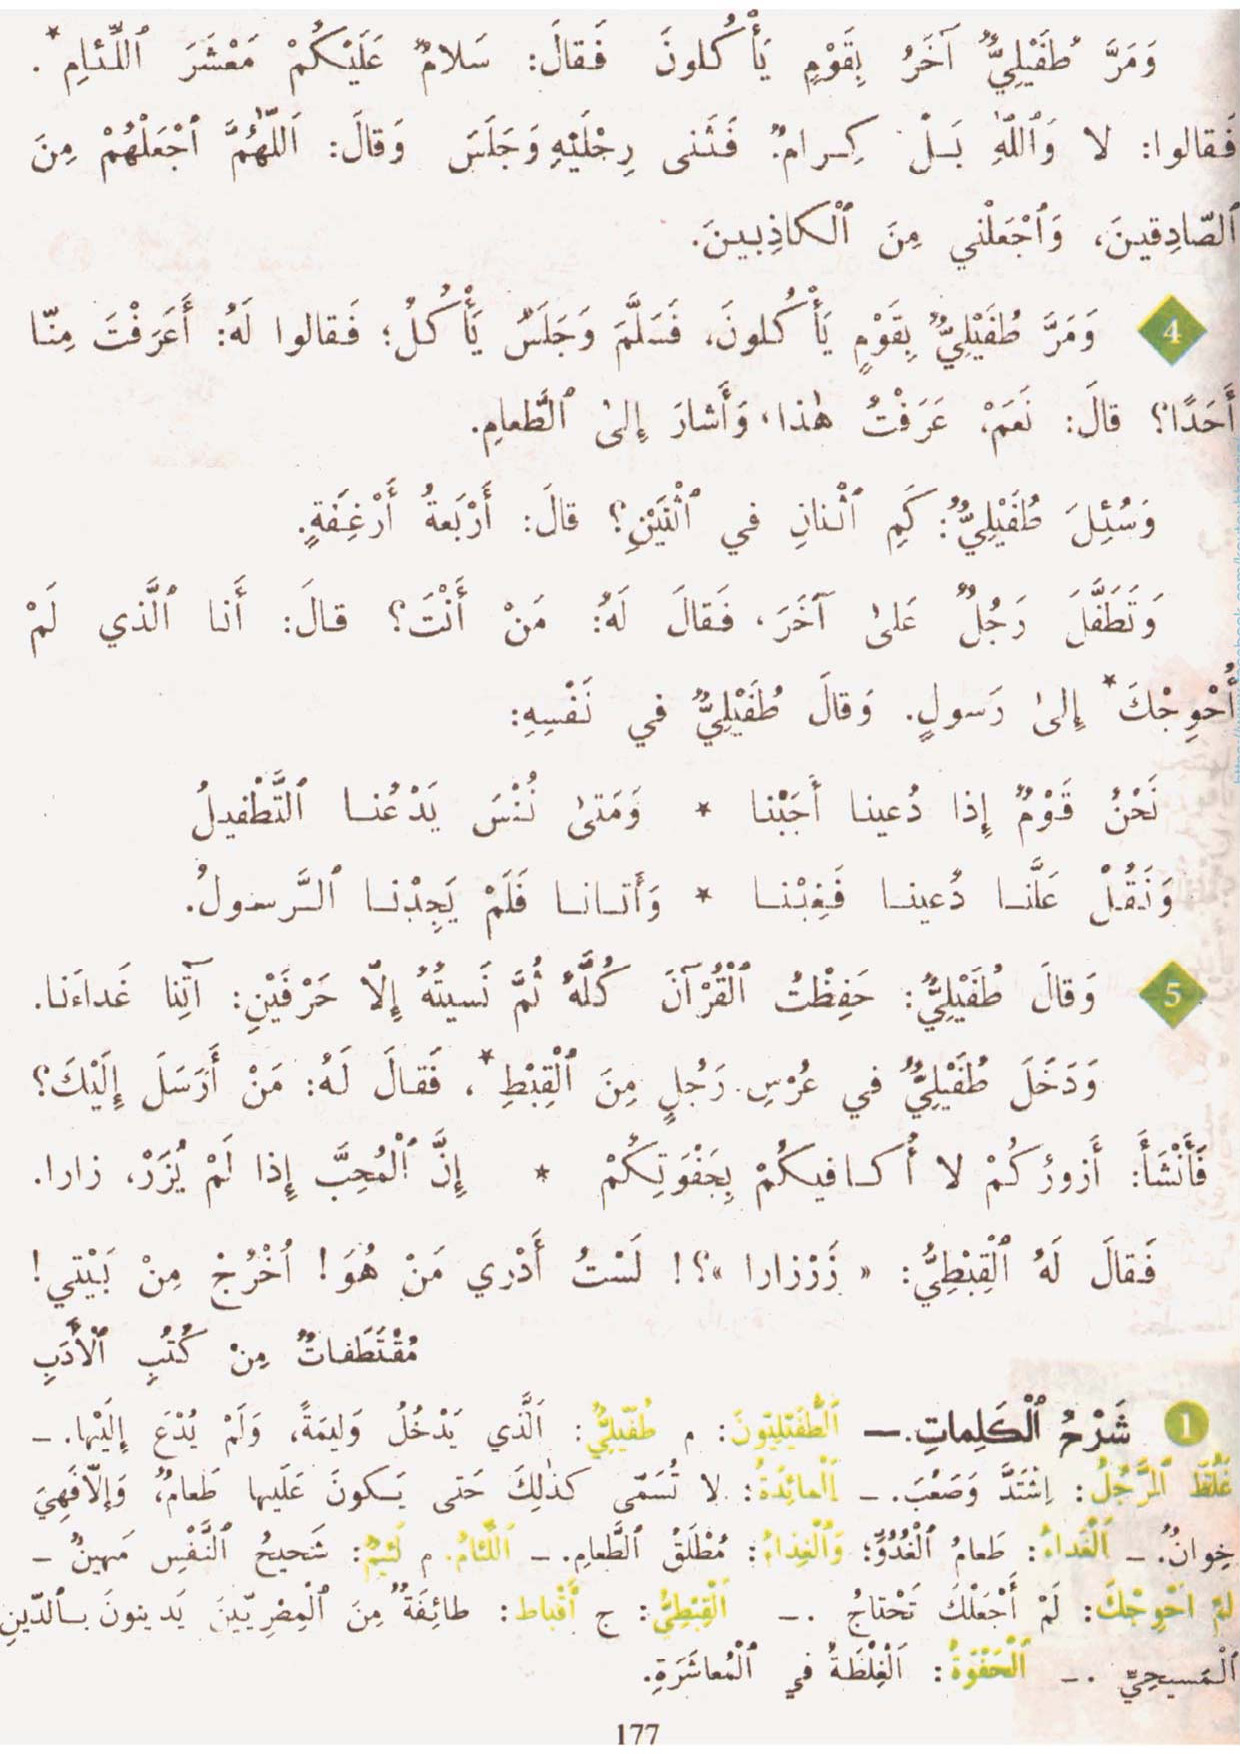 وَمَرَّ طُفَيْلِيٌّ آخَرُ بِقَوْمٍ يَأْكُلونَ فَقالَ: سَلامٌ عَلَيْكُمْ مَعْشَرَ ٱللِّئامِ*.
فَقالوا: لا وَٱللّٰهِ بَلْ كِرامٌ. فَثَنى رِجْلَيْهِ وَجَلَسَ وَقالَ: اَللّٰهُمَّ ٱجْعَلْهُمْ مِنَ
ٱلصّادِقينَ، وَٱجْعَلْني مِنَ ٱلْكاذِبينَ.
4 وَمَرَّ طُفَيْلِيٌّ بِقَوْمٍ يَأْكُلونَ، فَسَلَّمَ وَجَلَسَ يَأْكُلُ؛ فَقالوا لَهُ: أَعَرَفْتَ مِنّا
أَحَدًا؟ قالَ: نَعَمْ، عَرَفْتُ هٰذا، وَأَشارَ إِلىٰ ٱلطَّعامِ.
وَسُئِلَ طُفَيْلِيٌّ: كَمِ ٱثْنانِ في ٱثْنَيْنِ؟ قالَ: أَرْبَعةُ أَرْغِفَةٍ.
وَتَطَفَّلَ رَجُلٌ عَلىٰ آخَرَ، فَقالَ لَهُ: مَنْ أَنْتَ؟ قالَ: أَنا ٱلَّذي لَمْ
أُحْوِجْكَ* إِلىٰ رَسولٍ. وَقالَ طُفَيْلِيٌّ في نَفْسِهِ:
نَحْنُ قَوْمٌ إِذا دُعينا أَجَبْنا * وَمَتىٰ نُنْسَ يَدْعُنا ٱلتَّطْفيلُ
وَنَقُلْ عَلَّنا دُعينا فَغِبْنا * وَأَتانا فَلَمْ يَجِدْنا ٱلرَّسولُ.
5 وَقالَ طُفَيْلِيٌّ: حَفِظْتُ ٱلْقُرْآنَ كُلَّهُ ثُمَّ نَسيتُهُ إِلّا حَرْفَيْنِ: آتِنا غَداءَنا.
وَدَخَلَ طُفَيْلِيٌّ في عُرْسِ رَجُلٍ مِنَ ٱلْقِبْطِ*، فَقالَ لَهُ: مَنْ أَرْسَلَ إِلَيْكَ؟
فَأَنْشَأَ: أَزورُكُمْ لا أُكافيكُمْ بِجَفْوَتِكُمْ * إِنَّ ٱلْمُحِبَّ إِذا لَمْ يُزَرْ، زارا.
فَقالَ لَهُ ٱلْقِبْطِيُّ: « زَرْزارا »؟! لَسْتُ أَدْري مَنْ هُوَ! اُخْرُجْ مِنْ بَيْتي!
مُقْتَطَفاتٌ مِنْ كُتُبِ ٱلْأَدَبِ
1 شَرْحُ ٱلْكَلِماتِ. — اَلطُّفَيْلِيّونَ: م طُفَيْلِيٌّ: اَلَّذي يَدْخُلُ وَليمَةً، وَلَمْ يُدْعَ إِلَيْها. —
غَلُظَ ٱلرَّجُلُ: اِشْتَدَّ وَصَعُبَ. — اَلْمائِدَةُ: لا تُسَمّى كذٰلِكَ حَتى يَكونَ عَلَيها طَعامٌ، وَإِلّا فَهِيَ
خِوانٌ. — اَلْغَداءُ: طَعامُ ٱلْغُدُوِّ؛ وَٱلْغِذاءُ: مُطْلَقُ ٱلطَّعامِ. — اَللِّئامُ. م لَئيمٌ: شَحيحُ ٱلنَّفْسِ مَهينٌ —
لَمْ أُحْوِجْكَ: لَمْ أَجْعَلْكَ تَحْتاجُ. — اَلْقِبْطِيُّ: ج أَقْباط: طائِفَةٌ مِنَ ٱلْمِصْرِيّينَ يَدينونَ بِٱلدّينِ
ٱلْمَسيحِيِّ. — اَلْجَفْوَةُ: اَلْغِلْظَةُ في ٱلْمُعاشَرَةِ.
177